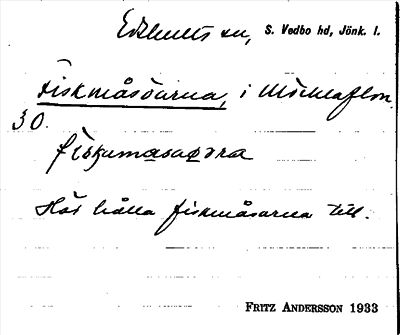 Edshults sn, S. Vedbo hd, Jönk. l.
Fiskmåsöarna, i Mörneflon
30.
fiskumasaøra
Här hålla fiskmåsarna till.
FRITZ ANDERSSON 1933